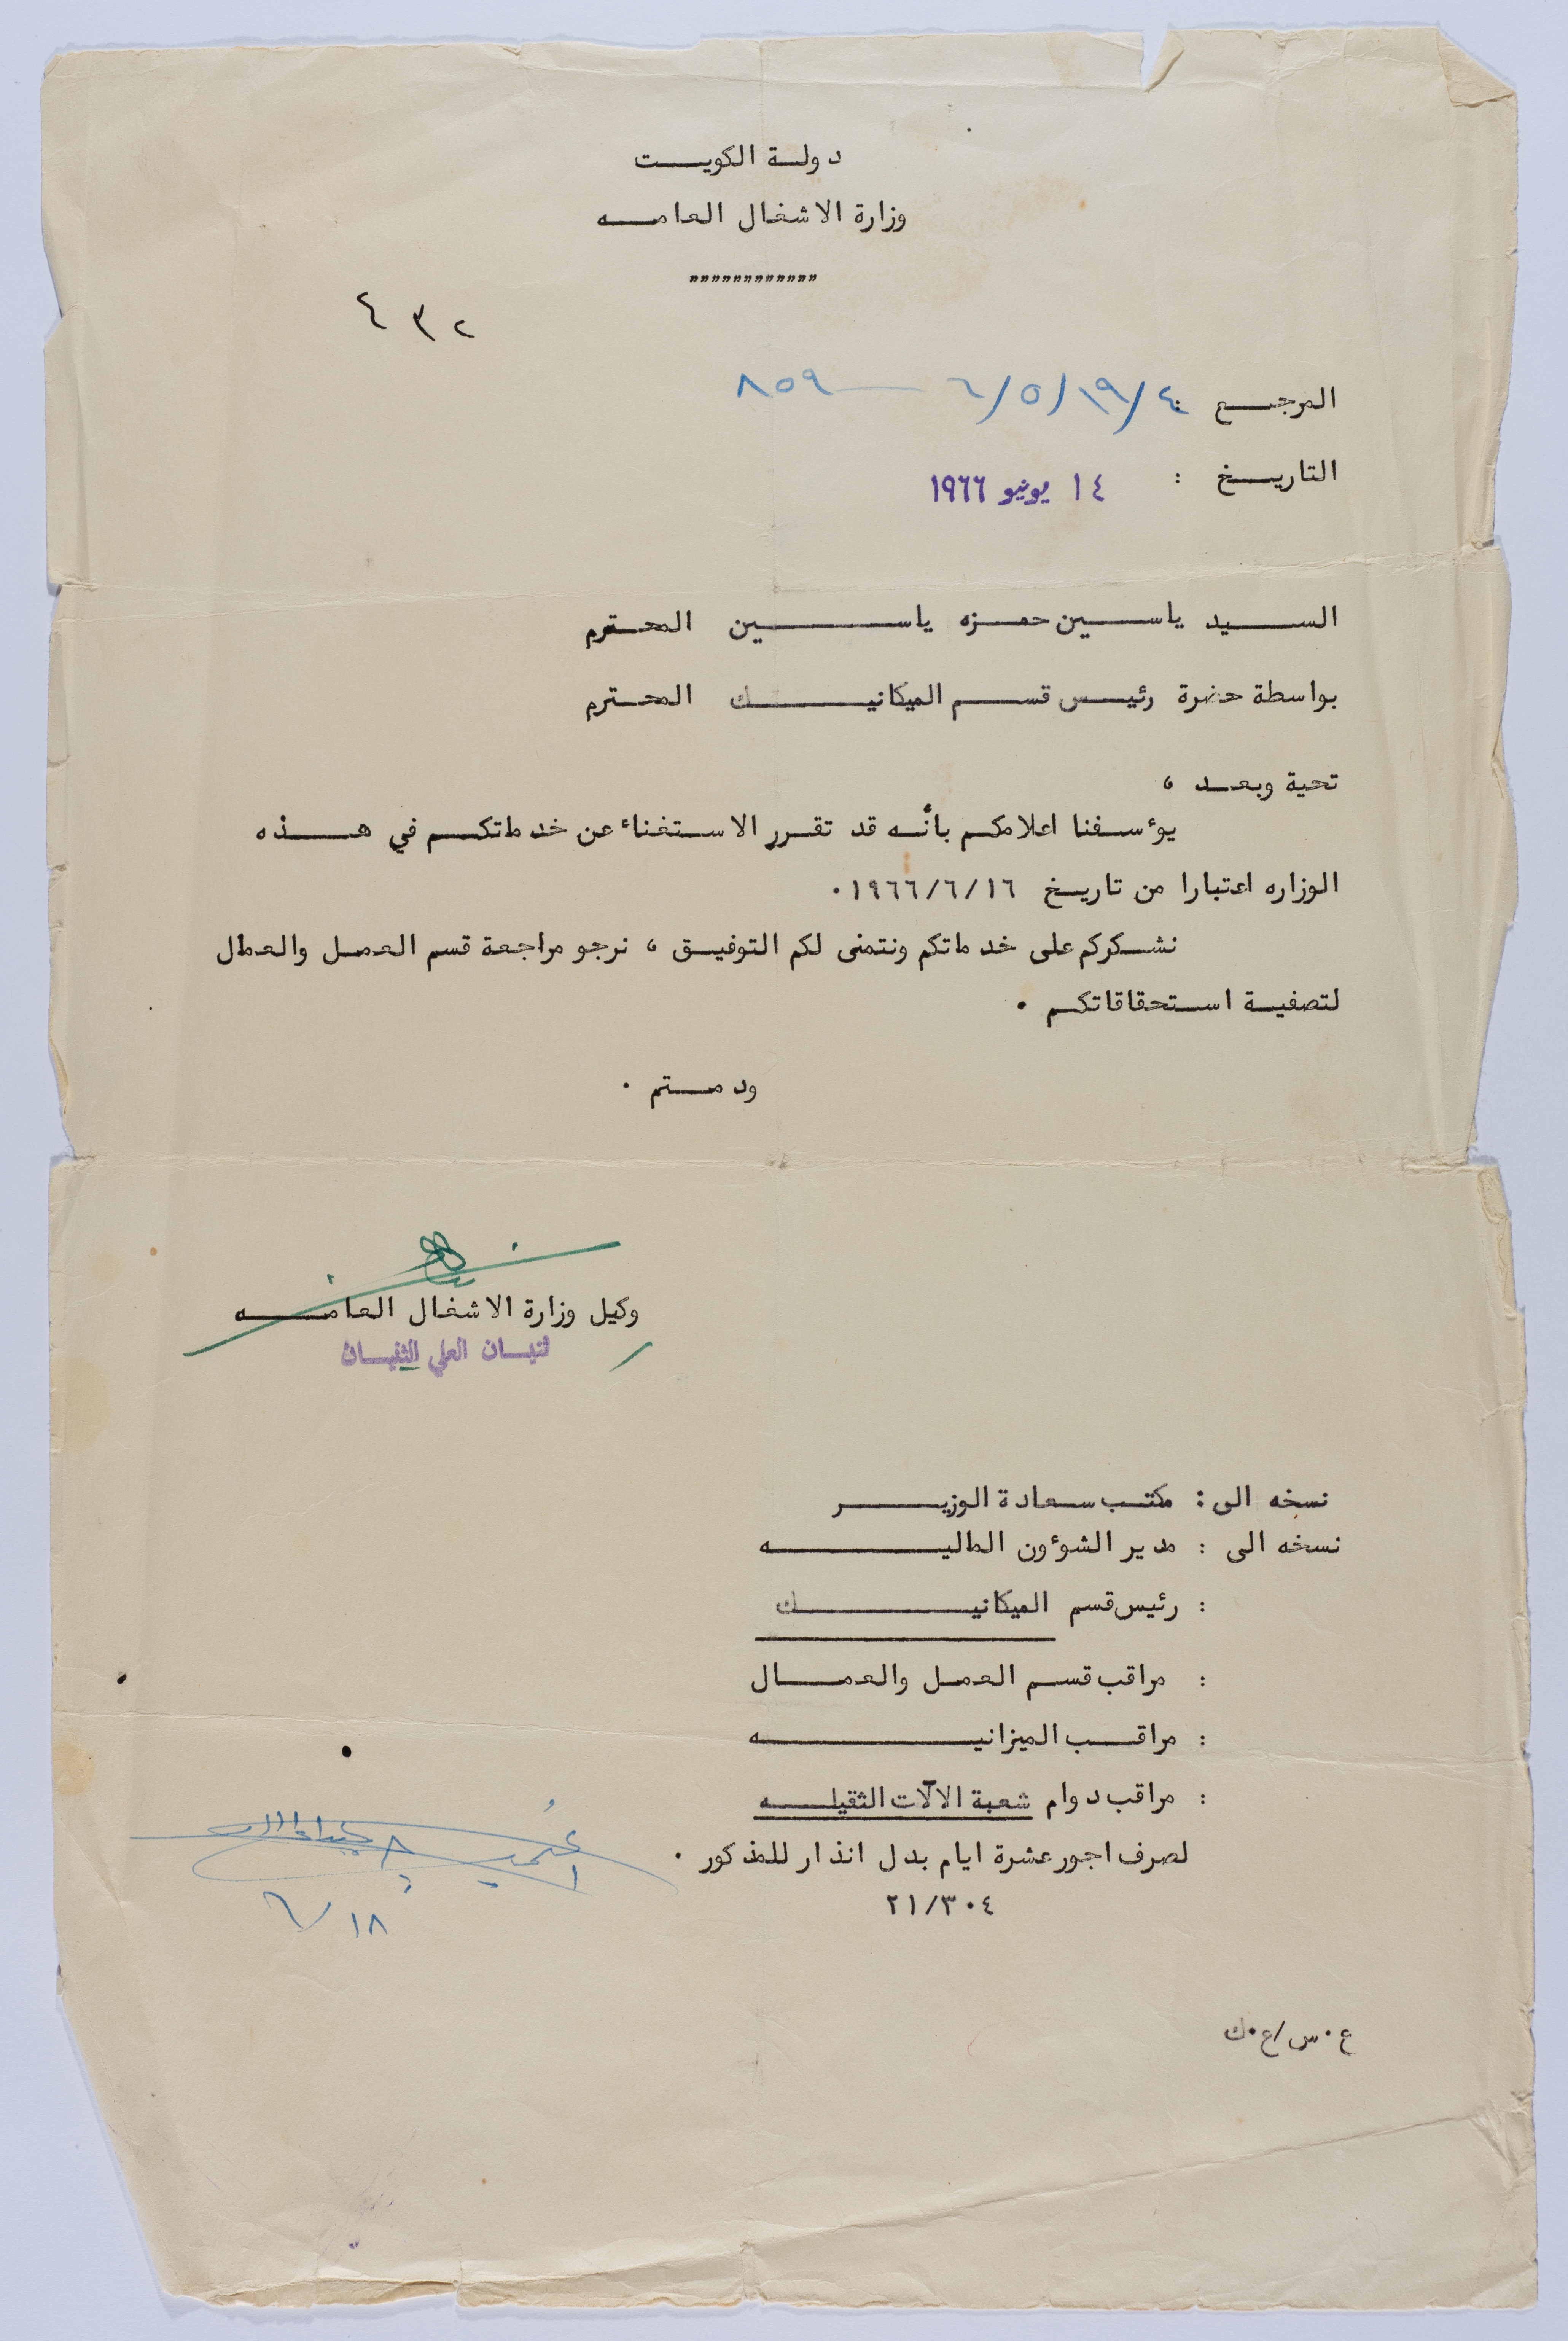 دولة الكويت
وزارة الاشغال العامه
""""""""""""
٤٣٢
المرجع : ٤/١٩/٥/٦ — ٨٥٩
التاريخ : ١٤ يونيو ١٩٦٦
السيد ياسين حمزه ياسين المحترم
بواسطة حضرة رئيس قسم الميكانيك المحترم
تحية وبعد ،
يؤسفنا اعلامكم بأنه قد تقرر الاستغناء عن خدماتكم في هذه
الوزاره اعتبارا من تاريخ ١٩٦٦/٦/١٦ .
نشكركم على خدماتكم ونتمنى لكم التوفيق ، نرجو مراجعة قسم العمل والعمال
لتصفية استحقاقاتكم .
ودمتم .
وكيل وزارة الاشغال العامه
ثنيان العلي الثنيان
نسخه الى : مكتب سعادة الوزير
نسخه الى : مدير الشؤون الماليه
: رئيس قسم الميكانيك
: مراقب قسم العمل والعمال
: مراقب الميزانيه
: مراقب دوام شعبة الالآت الثقيله
لصرف اجور عشرة ايام بدل انذار للمذكور .
٢١/٣٠٤
٦/١٨
ع.س/ع.ك